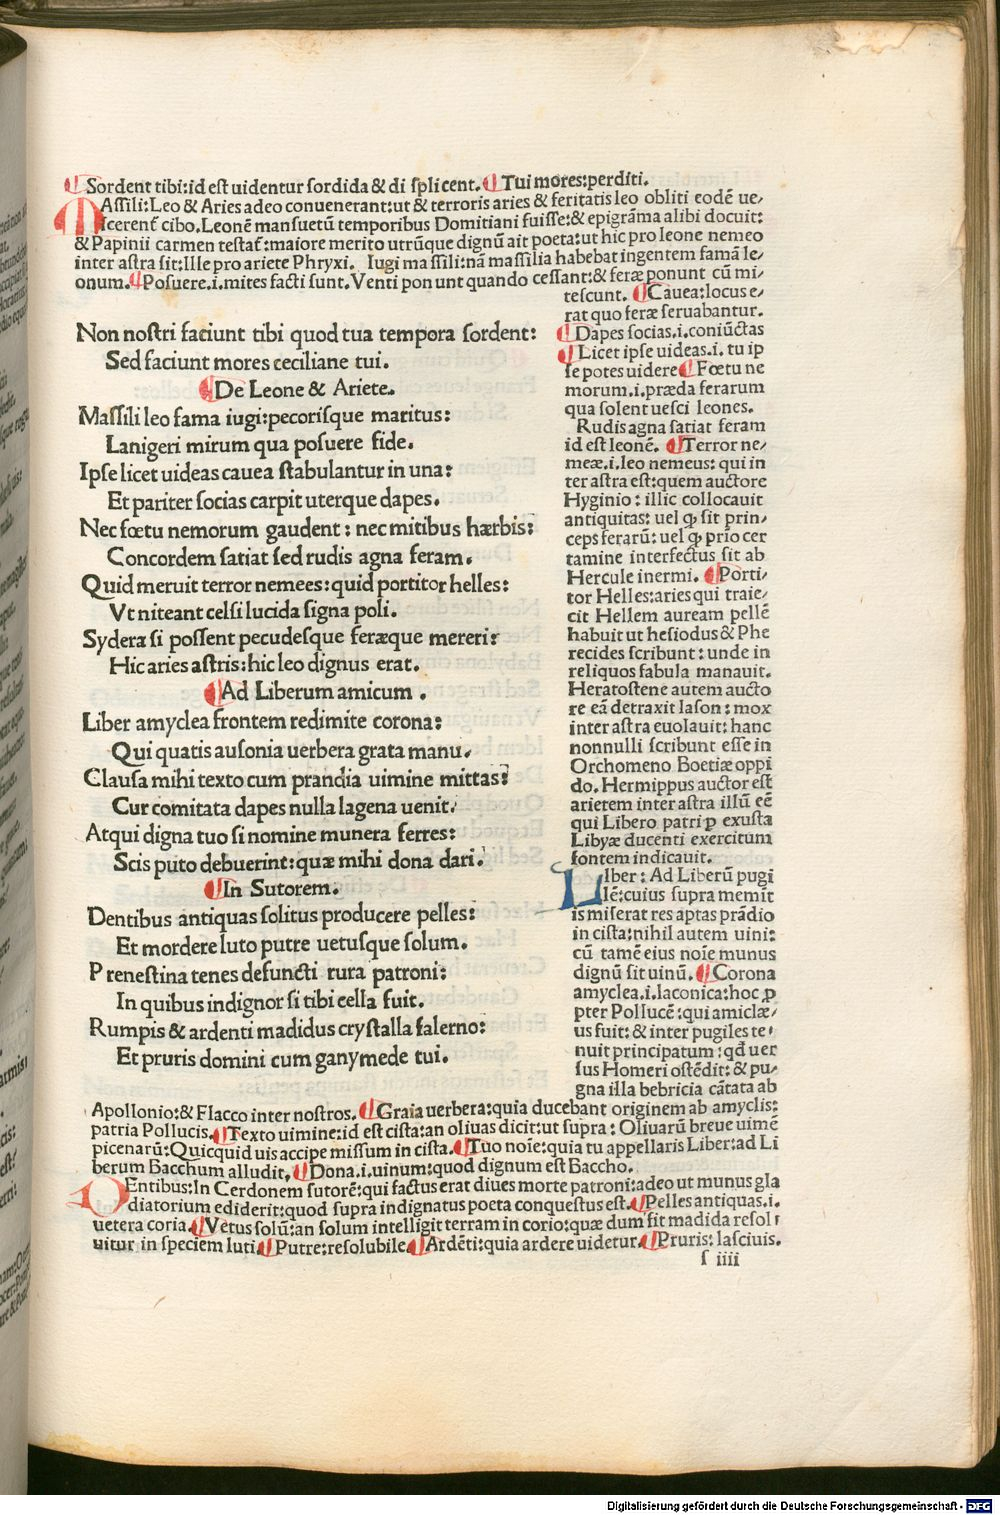 Sordent tibi:id est uidentur sordida & di splicent. Tui mores:perditi.
MAssili:Leo & Aries adeo conuenerant:ut & terroris aries & feritatis leo obliti eodē ue/
scerent᷑ cibo. Leonē mansuetū temporibus Domitiani fuisse:& epigrāma alibi docuit:
& Papinii carmen testat᷑:maiore merito utrūque dignū ait poeta:ut hic pro leone nemeo
inter astra sit:Ille pro ariete Phryxi. Iugi massili:nā massilia habebat ingentem famā le/
onum. Posuere.i.mites facti sunt. Venti ponunt quando cessant:& feræ ponunt cū mi/
tescunt. Cauea:locus e/
rat quo feræ seruabantur.
Dapes socias.i.coniūctas
Licet ipse uideas.i. tu ip
se potes uidere Fœtu ne
morum.i.præda ferarum
qua solent uesci leones.
Rudis agna satiat feram
id est leonē. Terror ne/
meæ.i.leo nemeus: qui in
ter astra est:quem auctore
Hyginio: illic collocauit
antiquitas: uel ꝙ sit prin/
ceps ferarū: uel ꝙ prio cer
tamine interfectus sit ab
Hercule inermi. Porti/
tor Helles:aries qui traie/
cit Hellem auream pellē
habuit ut hesiodus & Phe
recides scribunt: unde in
reliquos fabula manauit.
Heratostene autem aucto
re eā detraxit Iason: mox
inter astra euolauit: hanc
nonnulli scribunt esse in
Orchomeno Boetiæ oppi
do. Hermippus auctor est
arietem inter astra illū eē
qui Libero patri ꝑ exusta
Libyæ ducenti exercitum
fontem indicauit.
Non nostri faciunt tibi quod tua tempora sordent:
Sed faciunt mores ceciliane tui.
De Leone & Ariete.
Massili leo fama iugi:pecorisque maritus:
Lanigeri mirum qua posuere fide.
Ipse licet uideas cauea stabulantur in una:
Et pariter socias carpit uterque dapes.
Nec fœtu nemorum gaudent: nec mitibus hærbis:
Concordem satiat sed rudis agna feram.
Quid meruit terror nemees: quid portitor helles:
Vt niteant celsi lucida signa poli.
Sydera si possent pecudesque feræque mereri:
Hic aries astris:hic leo dignus erat.
Ad Liberum amicum .
Liber amyclea frontem redimite corona:
Qui quatis ausonia uerbera grata manu.
Clausa mihi texto cum prandia uimine mittas:
Cur comitata dapes nulla lagena uenit.
Atqui digna tuo si nomine munera ferres:
Scis puto debuerint:quæ mihi dona dari.
In Sutorem.
Dentibus antiquas solitus producere pelles:
Et mordere luto putre uetusque solum.
Prenestina tenes defuncti rura patroni:
In quibus indignor si tibi cella fuit.
Rumpis & ardenti madidus crystalla falerno:
Et pruris domini cum ganymede tui.
LIber: Ad Liberū pugi
lē:cuius supra memit
is miserat res aptas prādio
in cista:nihil autem uini:
cū tamē eius noīe munus
dignū sit uinū. Corona
amyclea.i.laconica:hoc ꝓ
pter Pollucē:qui amiclæ/
us fuit: & inter pugiles te/
nuit principatum: qđ uer
sus Homeri ostēdit: & pu/
gna illa bebricia cātata ab
Apollonio:& Flacco inter nostros. Graia uerbera:quia ducebant originem ab amyclis:
patria Pollucis. Texto uimine:id est cista:an oliuas dicit:ut supra: Oliuarū breue uimē
picenarū:Quicquid uis accipe missum in cista. Tuo noīe:quia tu appellaris Liber:ad Li
berum Bacchum alludit, Dona.i.uinum:quod dignum est Baccho.
DEntibus:In Cerdonem sutorē:qui factus erat diues morte patroni:adeo ut munus gla
diatorium ediderit:quod supra indignatus poeta conquestus est. Pelles antiquas.i.
uetera coria. Vetus solū:an solum intelligit terram in corio:quæ dum sit madida resol
uitur in speciem luti. Putre:resolubile. Ardēti:quia ardere uidetur. Pruris: lasciuis.
s iiii
Digitalisierung gefördert durch die Deutsche Forschungsgemeinschaft - DFG